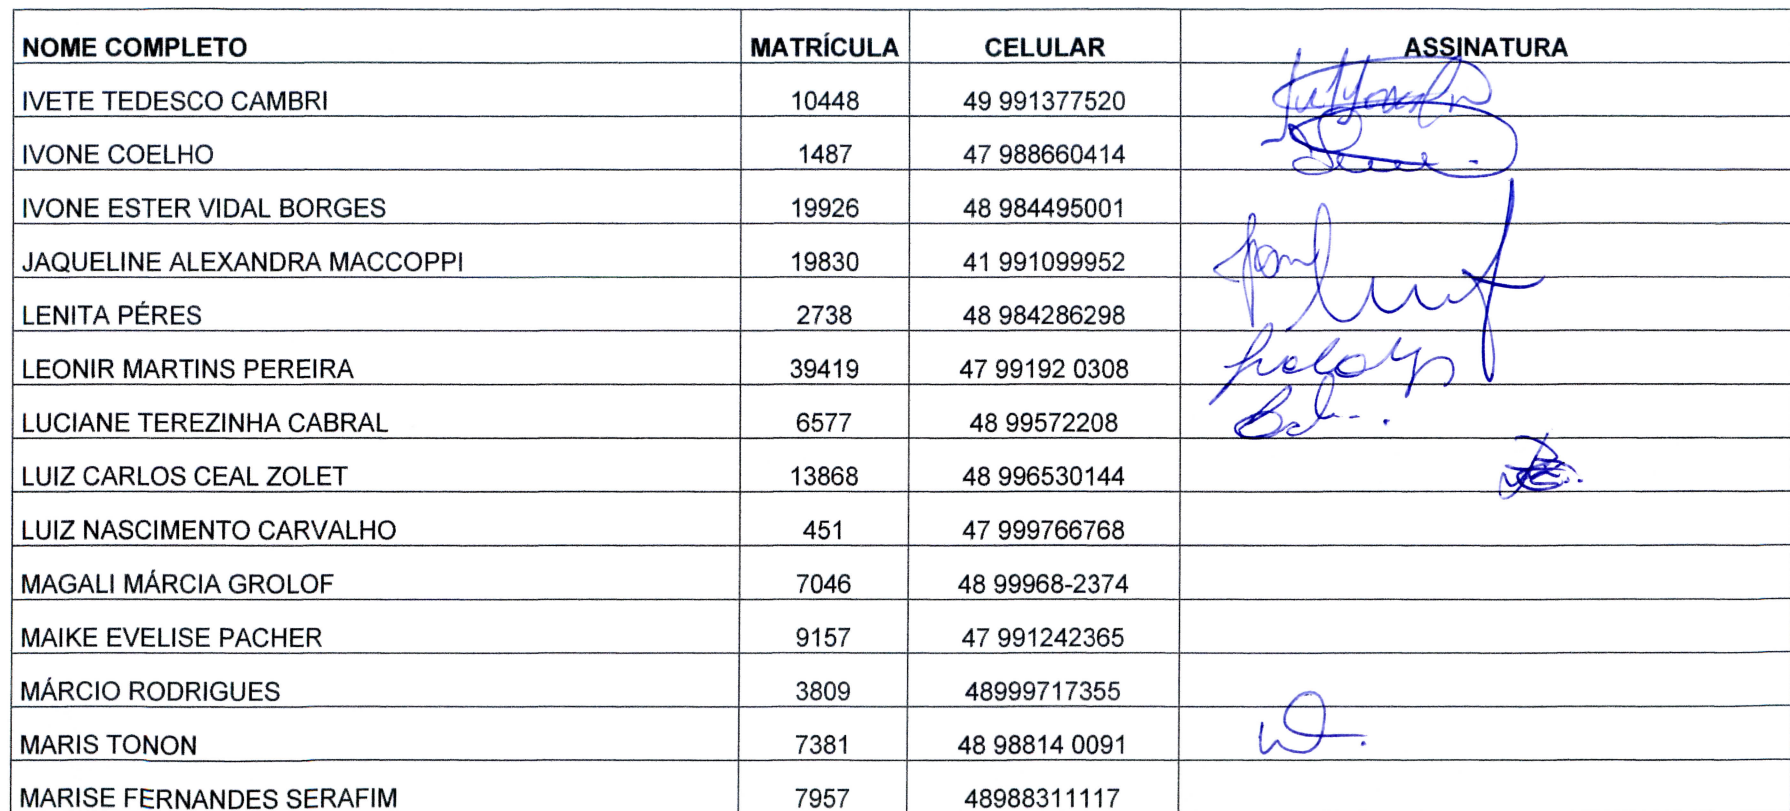 NOME COMPLETO MATRÍCULA CELULAR ASSINATURA
IVETE TEDESCO CAMBRI 10448 49 991377520
IVONE COELHO 1487 47 988660414
IVONE ESTER VIDAL BORGES 19926 48 984495001
JAQUELINE ALEXANDRA MACCOPPI 19830 41 991099952
LENITA PÉRES 2738 48 984286298
LEONIR MARTINS PEREIRA 39419 47 99192 0308
LUCIANE TEREZINHA CABRAL 6577 48 99572208
LUIZ CARLOS CEAL ZOLET 13868 48 996530144
LUIZ NASCIMENTO CARVALHO 451 47 999766768
MAGALI MÁRCIA GROLOF 7046 48 99968-2374
MAIKE EVELISE PACHER 9157 47 991242365
MÁRCIO RODRIGUES 3809 48999717355
MARIS TONON 7381 48 98814 0091
MARISE FERNANDES SERAFIM 7957 48988311117